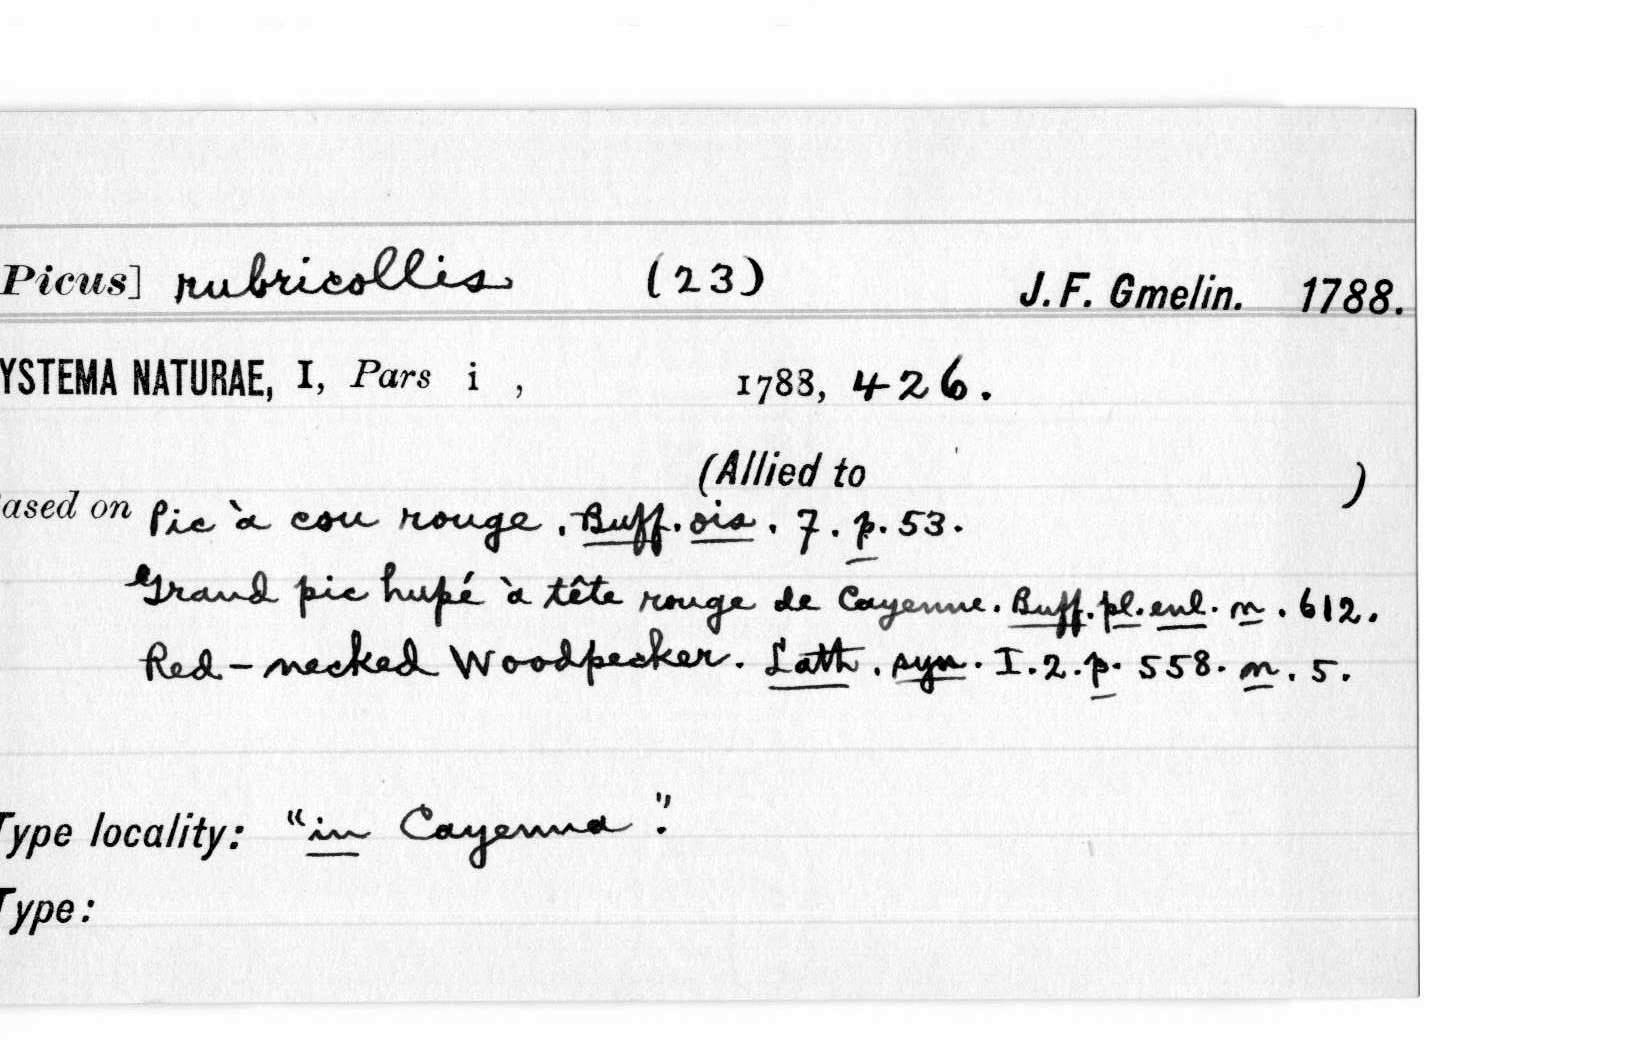 Picus] rubricollis (23) J. F. Gmelin. 1788.
YSTEMA NATURAE, I, Pars i , 1788, 426.
(Allied to )
ased on Pic à cou rouge . Buff. ois. 7. p. 53.
Grand pic hupé à tête rouge de Cayenne. Buff. pl. enl. n. 612.
Red-necked Woodpecker. Lath. syn. I. 2. p. 558. n. 5.
Type locality: "in Cayenna".
Type: